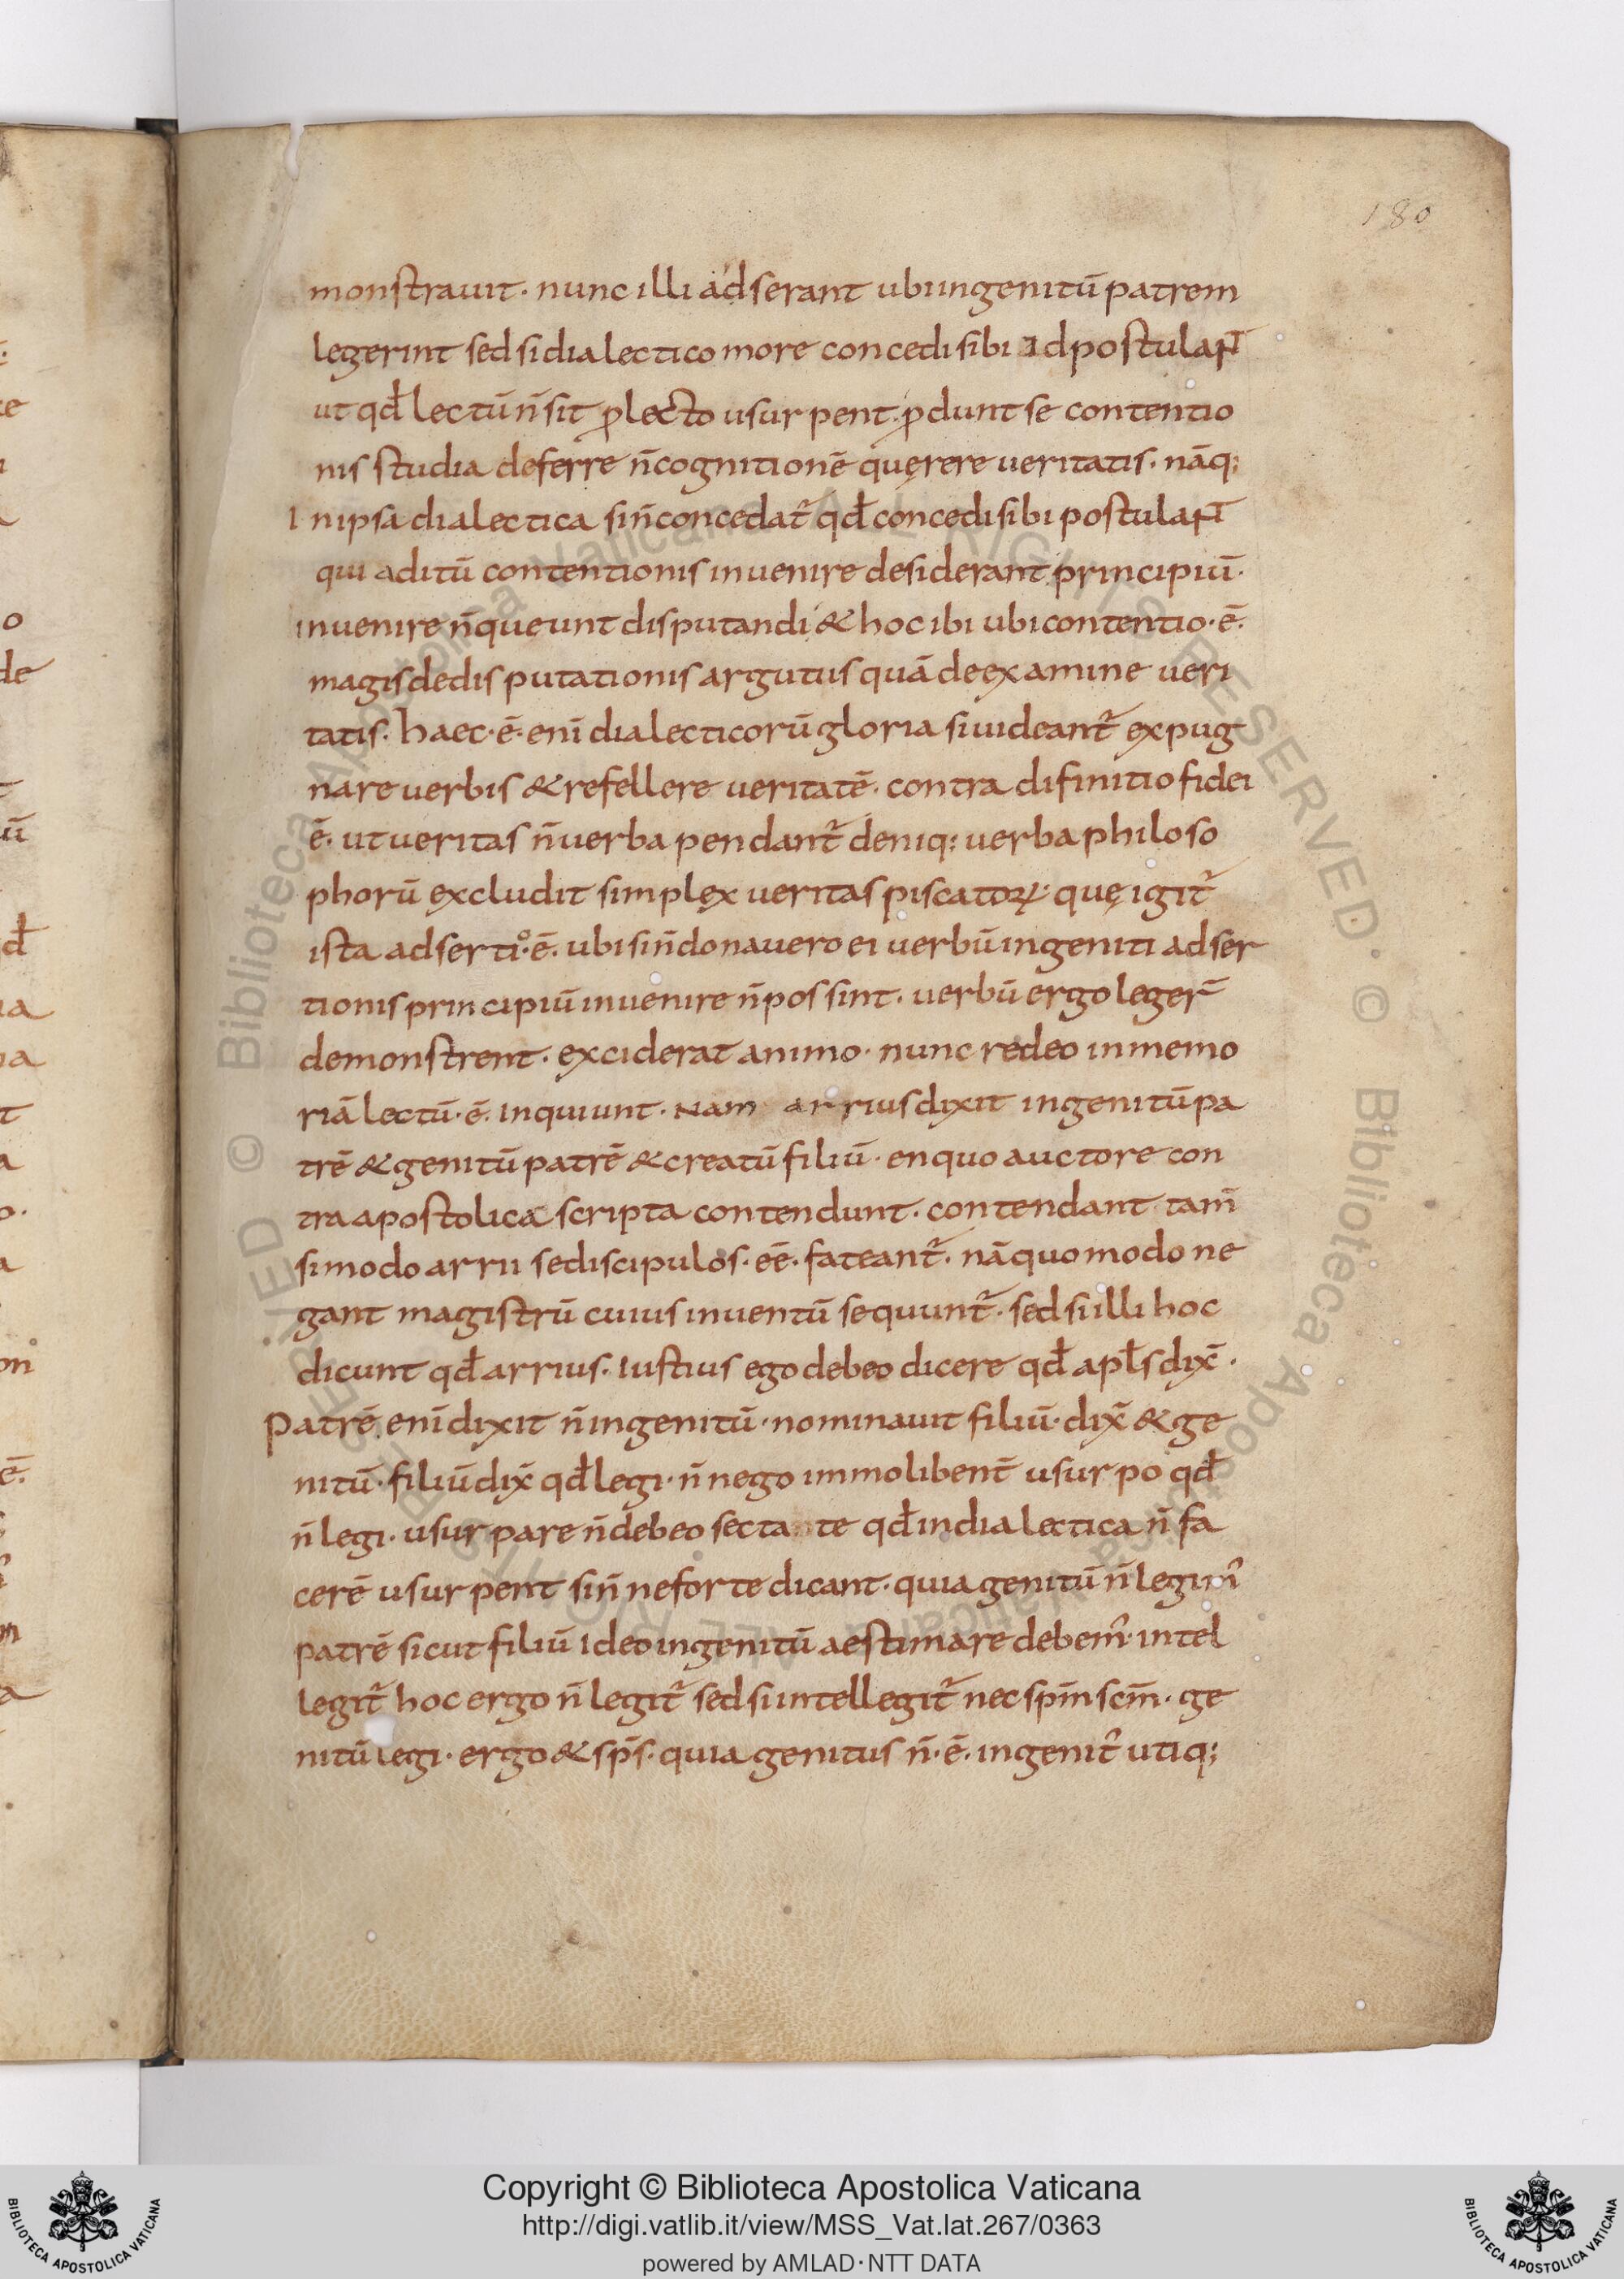 180
monstrauit· nunc illi adserant ubi ingenitū patrem
legerint sed si dialectico more concedi sibi id postulant
ut qđ lectū n̄ sit ꝓ lecto usurpent· ꝓdunt se contentio
nis studia deferre n̄ cognitionē quęrere ueritatis· nāq;
In ipsa dialectica si n̄ concedat᷑ qđ concedi sibi postulant
qui aditū contentionis inuenire desiderant principiū·
inuenire n̄ queunt disputandi & hoc ibi ubi contentio·ē·
magis de disputationis argutiis quā de examine ueri
tatis· haec·ē· enī dialecticorū gloria si uideant᷑ expug
nare uerbis & refellere ueritatē· contra difinitio fidei
ē· ut ueritas n̄ uerba pendant᷑ deniq; uerba philoso
phorū excludit simplex ueritas piscatoꝝ· quę igit᷑
ista adsertio·ē· ubi si n̄ donauero ei uerbū ingeniti adser
tionis principiū inuenire n̄ possint· uerbū ergo leger̄
demonstrent· exciderat animo· nunc redeo in memo
riā lectū·ē· Inquiunt· Nam arrius dixit ingenitū pa
trē & genitū patrē & creatū filiū· en quo auctore con
tra apostolica scripta contendunt· contendant tam̄
si modo arrii se discipulos·eē· fateant᷑· nā quomodo ne
gant magistrū cuius inuentū sequunt᷑· sed si illi hoc
dicunt qđ arrius· iustius ego debeo dicere qđ apłs dix̄·
Patrē enī dixit n̄ ingenitū· nominauit filiū· dix̄ & ge
nitū· filiū dix̄ qđ legi· n̄ nego immo libent̄ usurpo qđ
n̄ legi· usurpare n̄ debeo secta te qđ in dialectica n̄ fa
cerē usurpent si n̄ ne forte dicant· quia genitū n̄ legim᷒
patrē sicut filiū Ideo ingenitū aestimare debem᷒· intel
legit᷑ hoc ergo n̄ legit᷑ sed si intellegit᷑ nec spm̄ scm̄· ge
nitū legi· ergo & sps̄· quia genitus n̄·ē· ingenit᷒ utiq;
Copyright © Biblioteca Apostolica Vaticana
http://digi.vatlib.it/view/MSS_Vat.lat.267/0363
powered by AMLAD·NTT DATA